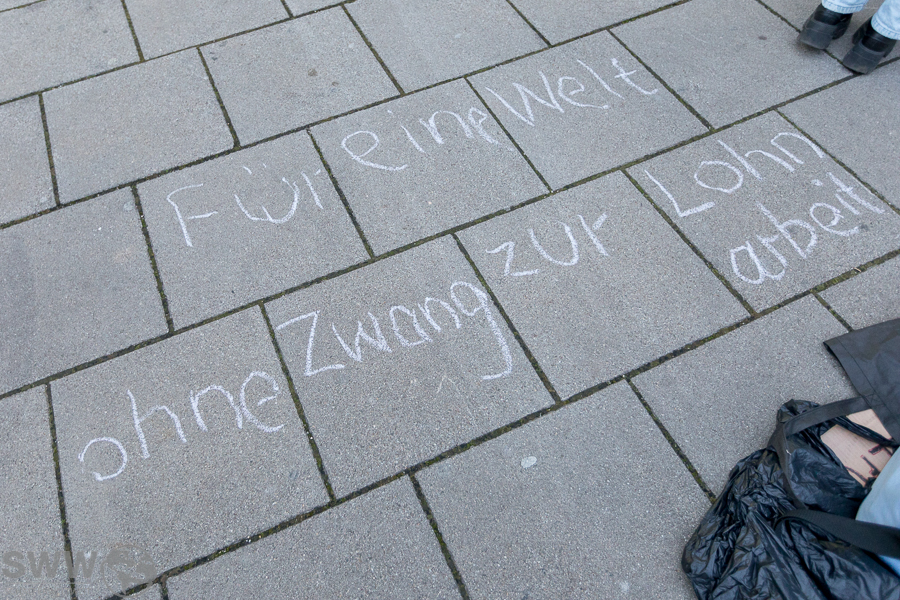 Für eine Welt
ohne Zwang zur Lohn
arbeit
SWW